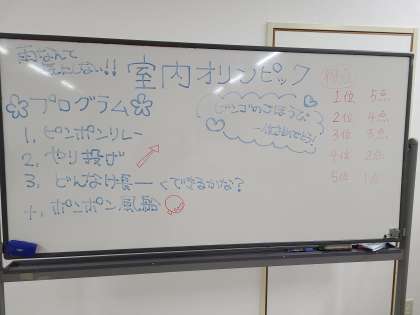 雨なんて
気にしない!!
室内オリンピック
プログラム
1. ピンポンリレー
2. やり投げ
3. どんなけ長ーくできるかな?
4. ポンポン風船
得点
1位 5点
2位 4点
3位 3点
4位 2点
5位 1点